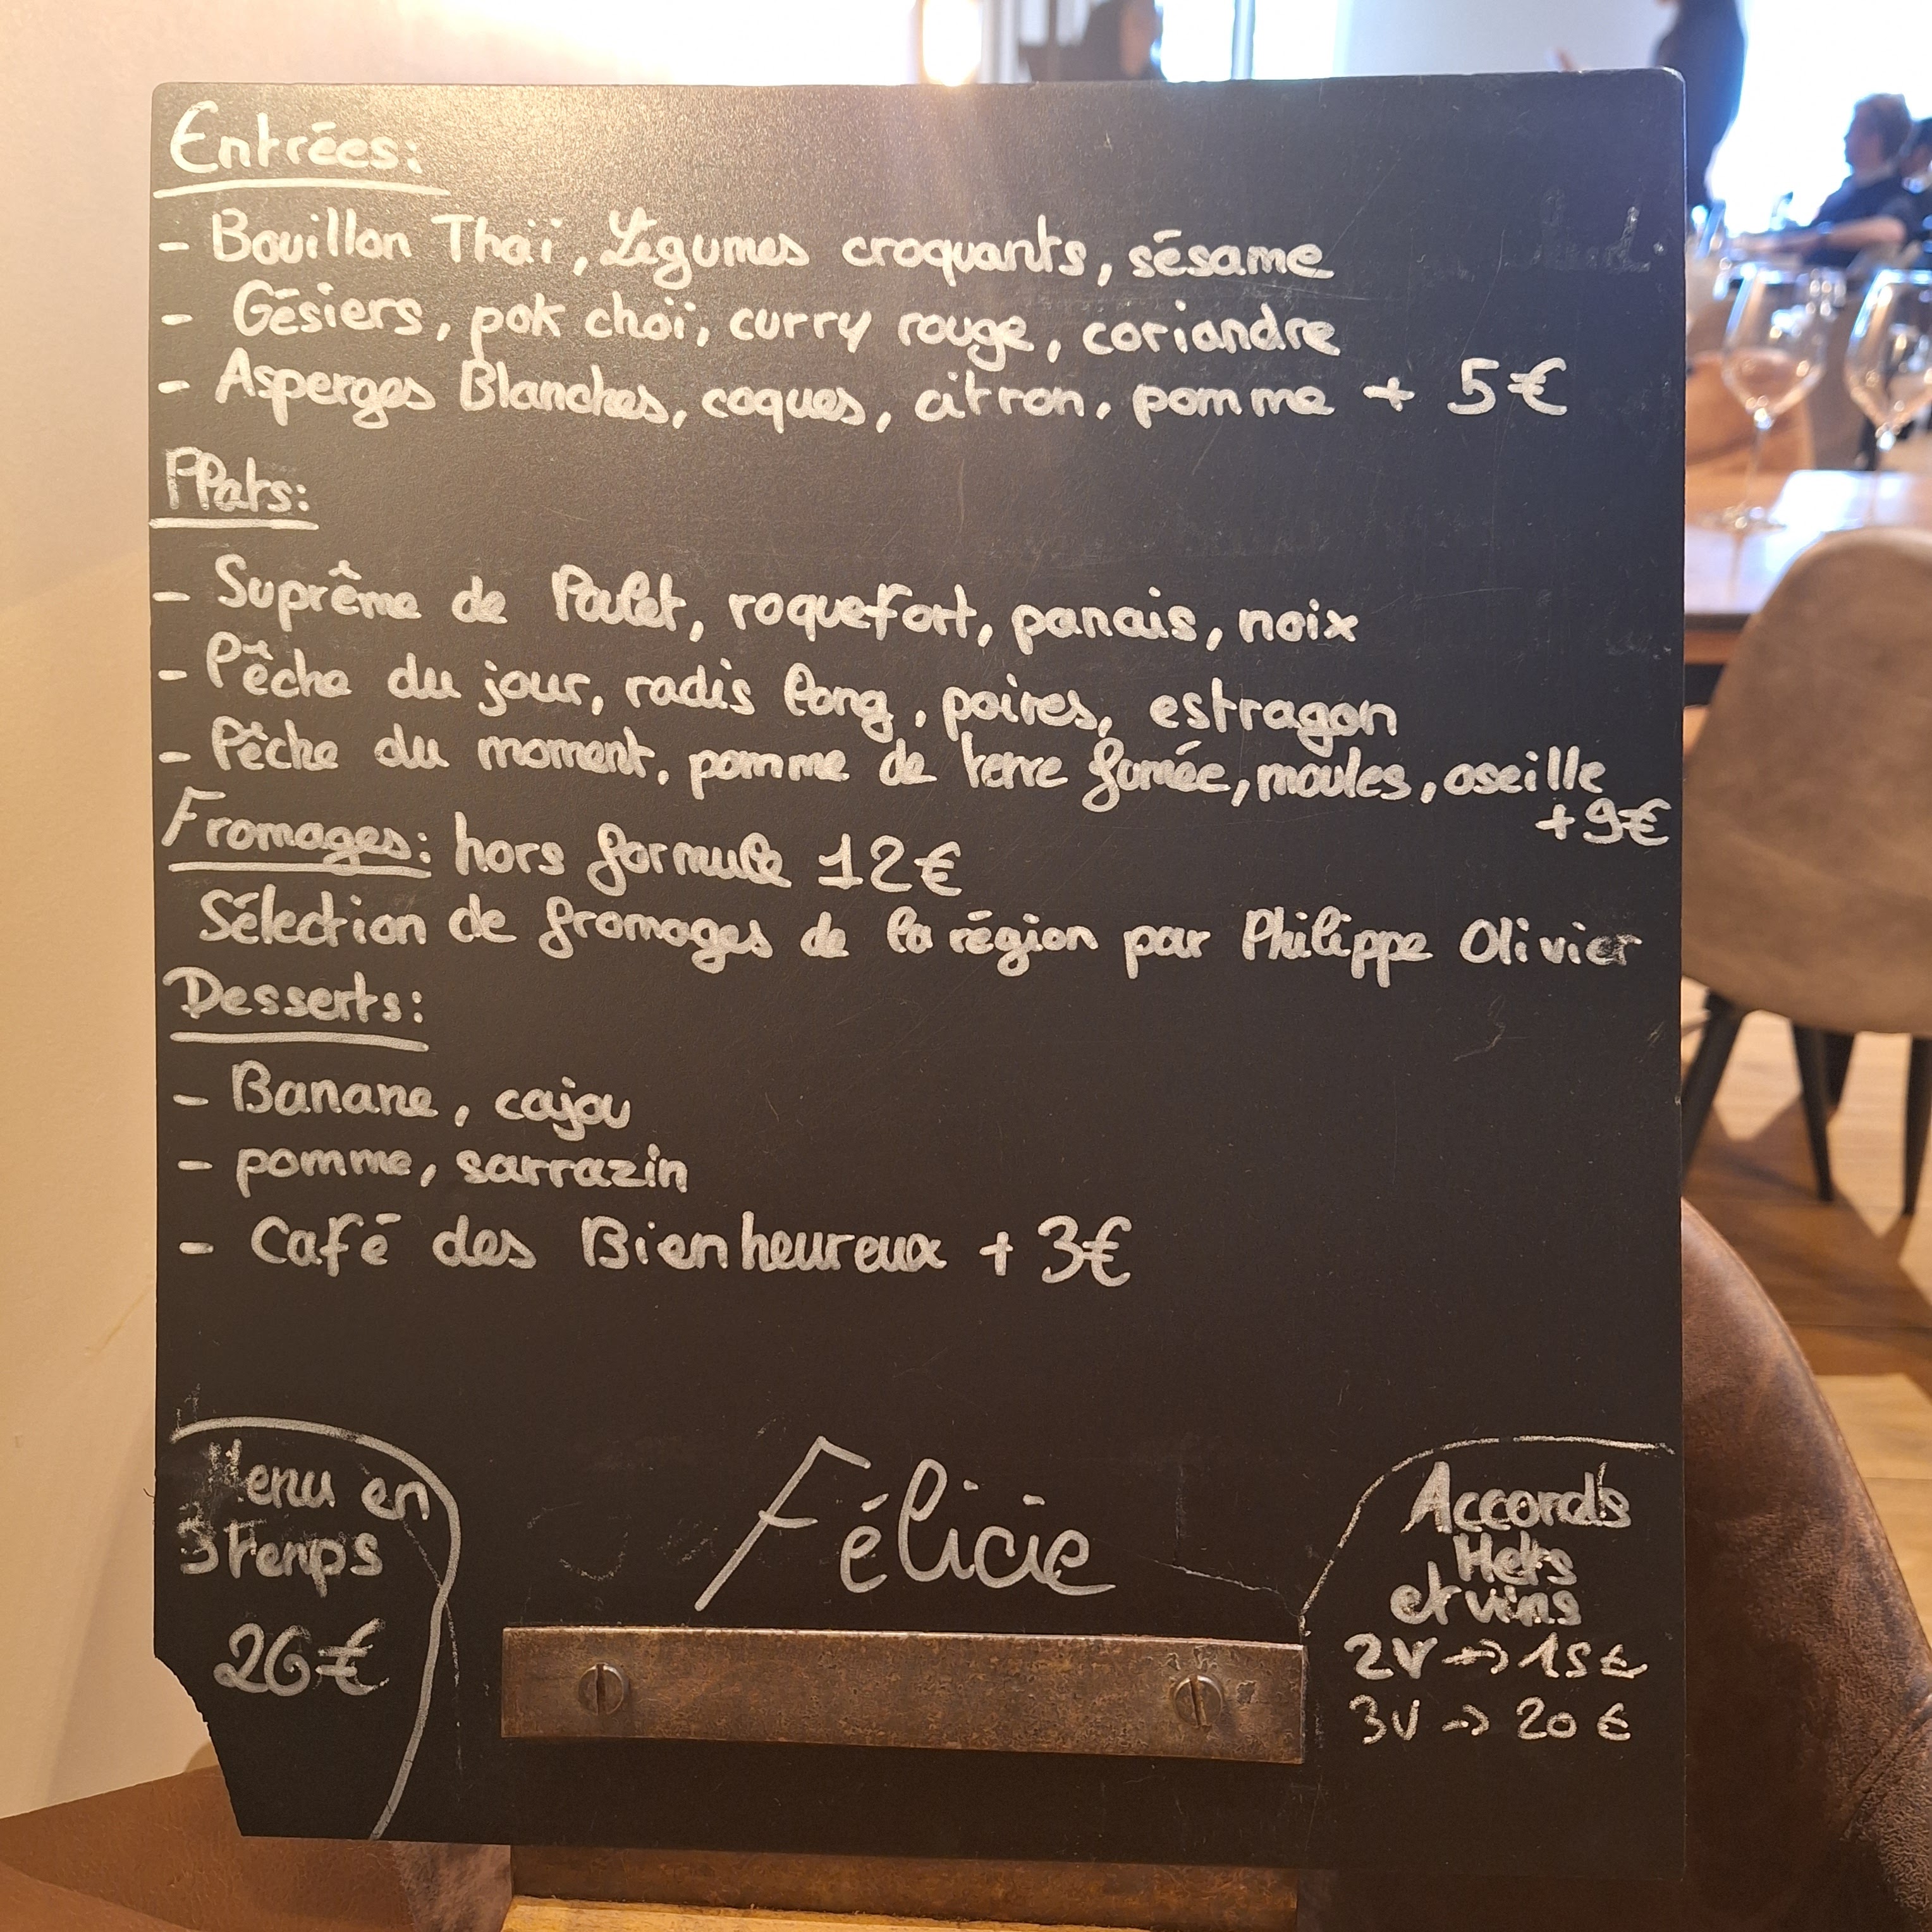 Entrées:
- Bouillon Thaï, Légumes croquants, sésame
- Gésiers, pok choï, curry rouge, coriandre
- Asperges Blanches, coques, citron, pomme + 5€
Plats:
- Suprême de Poulet, roquefort, panais, noix
- Pêche du jour, radis long, poires, estragon
- Pêche du moment, pomme de terre fumée, moules, oseille
+9€
Fromages: hors formule 12€
Sélection de fromages de la région par Philippe Olivier
Desserts:
- Banane, cajou
- pomme, sarrazin
- Café des Bienheureux + 3€
Menu en
3 Temps
26€
Félicie
Accords
Mets
et vins
2V → 15€
3V → 20€